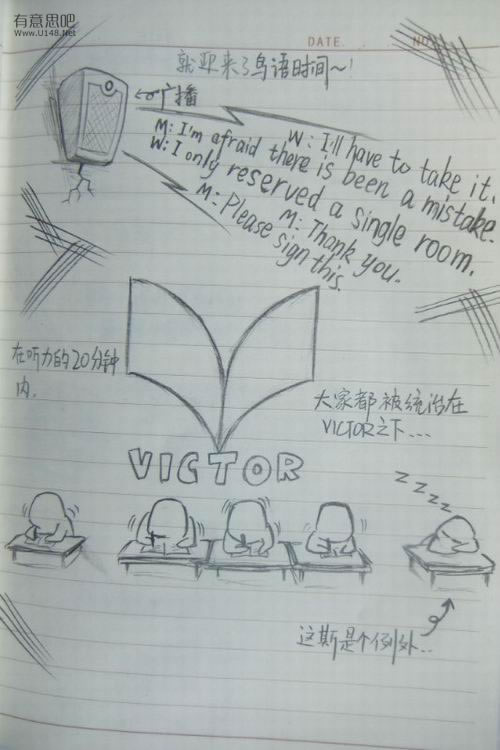 有意思吧
Www.U148.Net
DATE. NO
就迎来了鸟语时间~!
广播
W: I'll have to take it.
M: I'm afraid there is been a mistake.
W: I only reserved a single room.
M: Thank you.
M: Please sign this.
在听力的20分钟
内.
大家都被统治在
VICTOR之下...
VICTOR
z z z z
这斯是个例外..